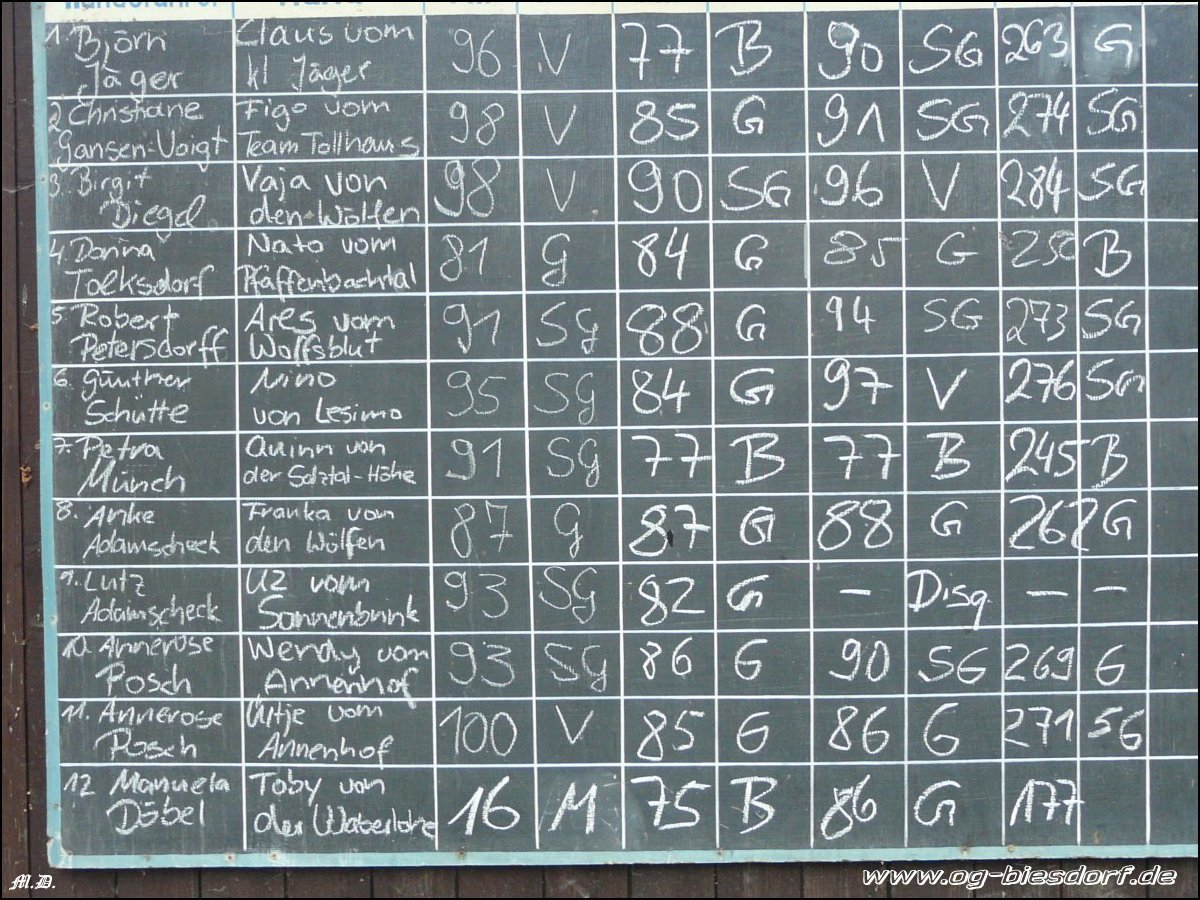 Hundeführer
1. Björn Jäger Claus vom kl Jäger 96 V 77 B 90 SG 263 G
2 Christiane Gansen-Voigt Figo vom Team Tollhaus 98 V 85 G 91 SG 274 SG
3. Birgit Diegel Vaja von den Wölfen 98 V 90 SG 96 V 284 SG
4. Dorina Tolksdorf Nato vom Pfaffenbachtal 81 G 84 G 85 G 250 B
5. Robert Petersdorff Ares vom Wolfsblut 91 SG 88 G 94 SG 273 SG
6. Günther Schütte Nino von Lesimo 95 SG 84 G 97 V 276 SG
7. Petra Münch Quinn von der Salztal-Höhe 91 SG 77 B 77 B 245 B
8. Anke Adamscheck Franka von den Wölfen 87 G 87 G 88 G 262 G
9. Lutz Adamscheck Uz vom Sonnenbrink 93 SG 82 G – Disq. – –
10. Annerose Posch Wendy vom Annenhof 93 SG 86 G 90 SG 269 G
11. Annerose Posch Antje vom Annenhof 100 V 85 G 86 G 271 SG
12 Manuela Döbel Toby von der Waberlohe 16 M 75 B 86 G 177
M.D.
www.og-biesdorf.de